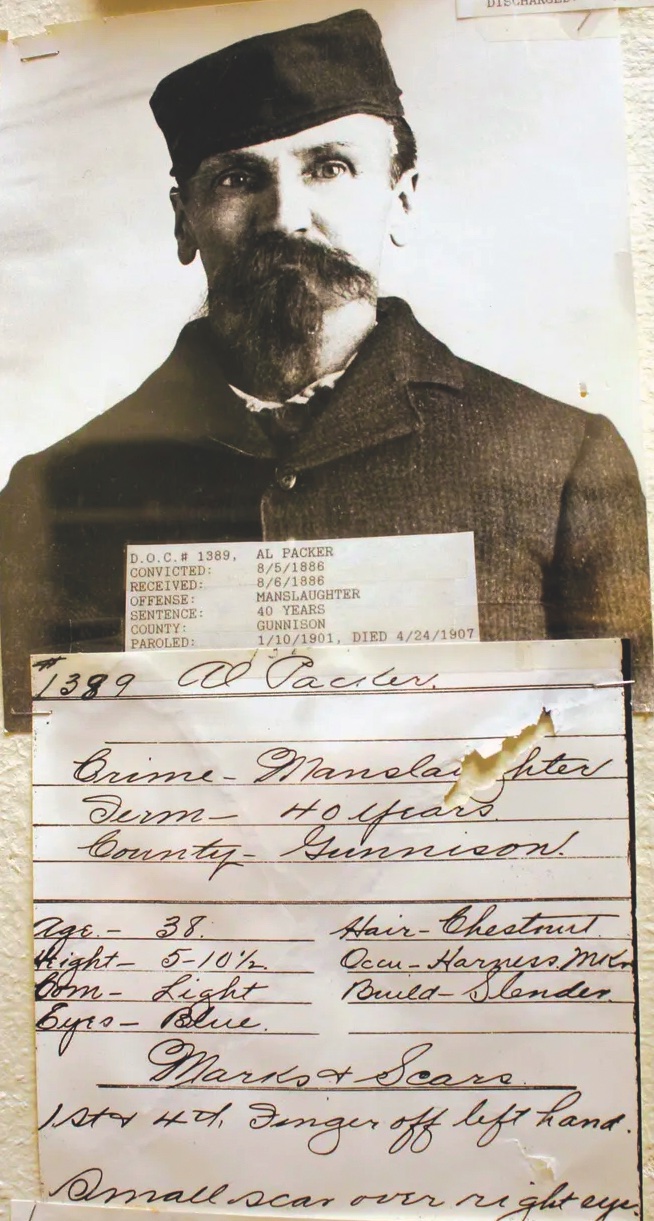 DISCHARGED:
D.O.C.# 1389, AL PACKER
CONVICTED: 8/5/1886
RECEIVED: 8/6/1886
OFFENSE: MANSLAUGHTER
SENTENCE: 40 YEARS
COUNTY: GUNNISON
PAROLED: 1/10/1901, DIED 4/24/1907
#1389 Al Packer.
Crime - Manslaughter
Term - 40 years.
County - Gunnison.
Age. - 38. Hair - Chestnut.
Hight - 5-10½. Occu - Harness Mkr
Com - Light Build - Slender.
Eyes - Blue.
Marks & Scars.
1st & 4th Finger off left hand.
Small scar over right eye.